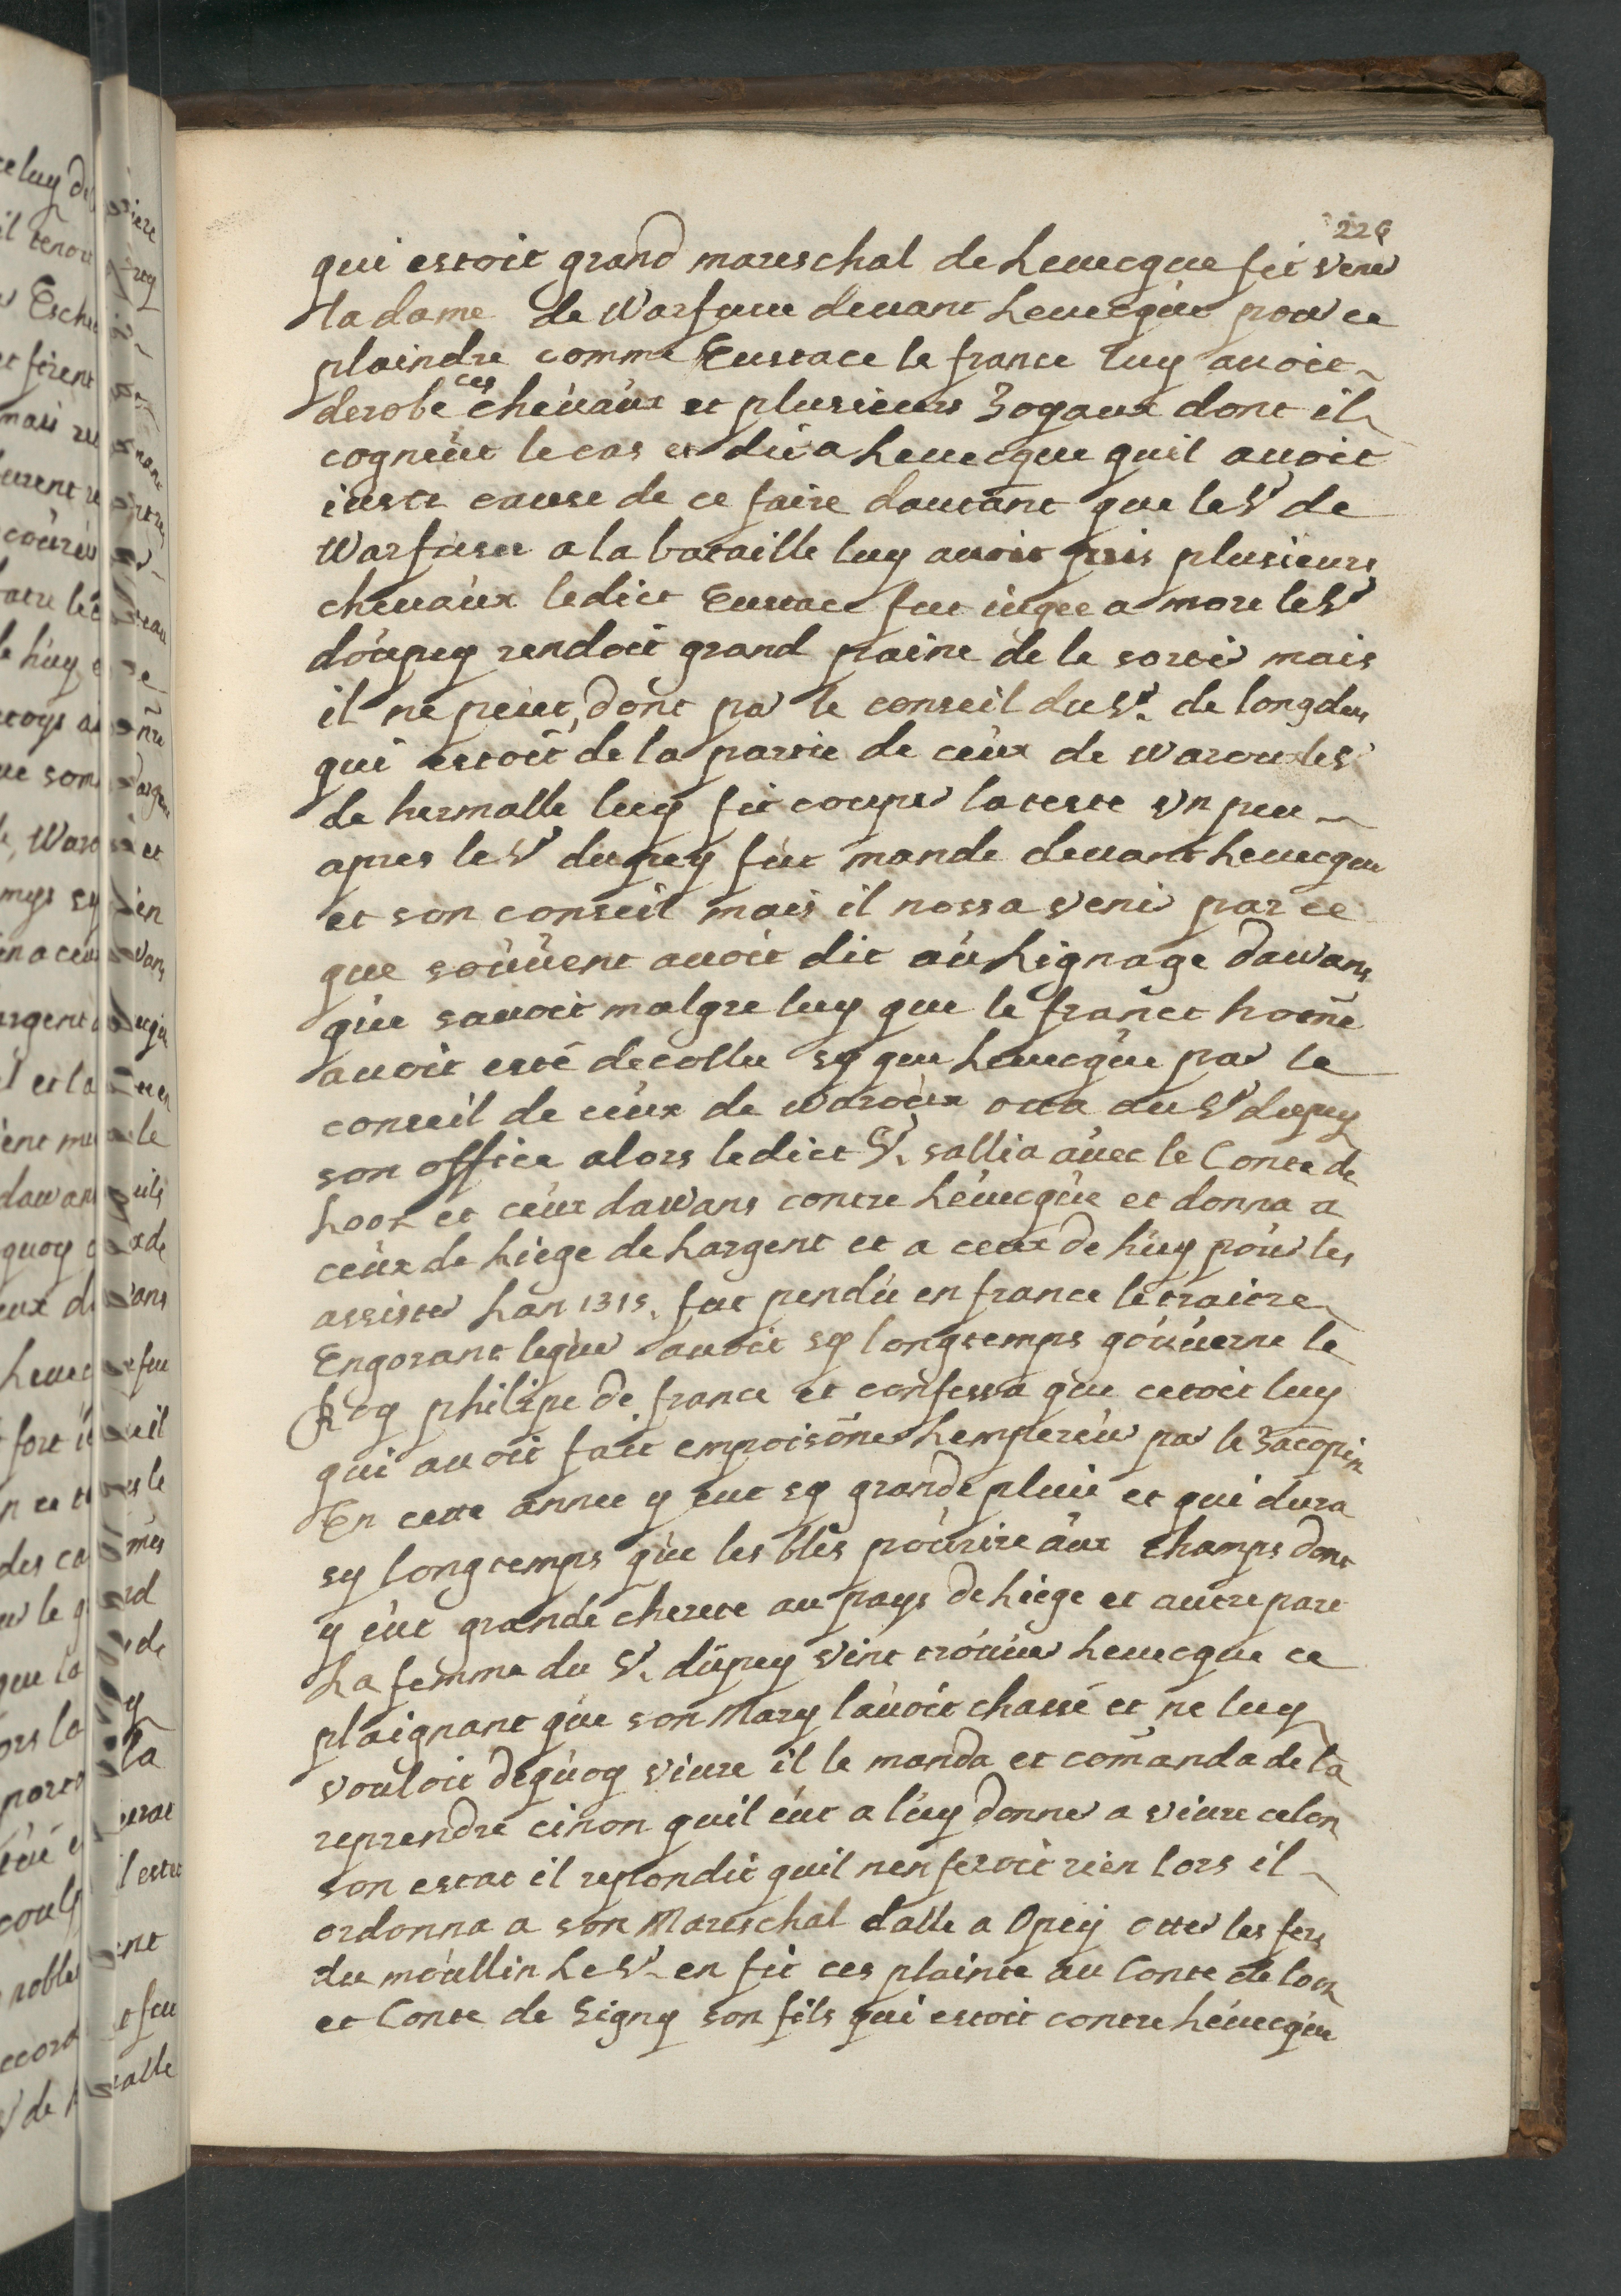 226
qui estoit grand mareschal de Leuecque fit venir
la dame de Warfusee deuant Leuecque pour ce
plaindre comme Eustace le france luy auoit
derobé ces cheuaux et plusieurs Joyaux dont il
cogneut le cas et dit a Leuecque quil auoit
iuste cause de ce faire dautant que le Sr de
Warfusee a la bataille luy auoit pris plusieurs
cheuaux ledict Eustace fut iugee a mort le Sr
doupey rendoit grand paine de le sortir mais
il ne peut, dont par le conseil du Sr. de longdeu
qui estoit de la partie de ceux de waroux le Sr
de hermalle luy fit couper la teste vn peu
apres le Sr dupey fut mande deuant Leuecque
et son conseil mais il nossa venir par ce
que souuent auoit dit au Lignage dawans
que sauoit malgre luy que le franct home
auoit esté decollee sy que Leuecque par le
conseil de ceux de waroux otta au Sr dupey
son office alors ledict Sr. sallia auec le Conte de
Loox et ceux dawans contre Léuecque et donna a
ceux de Liege de Largent et a ceux de huy pour les
assister Lan 1315. fut pendu en france le traitre
Engorant lequer auoit sy longtemps gouuerne le
Roy philipe de france et confessa que cetoit luy
qui auoit fait empoisoner Lempereur par le Jacopin
En cette annee y eut sy grande pluie et qui dura
sy longtemps que les bles pourire aux champs dont
y eut grande cherete au pays de Liege et autre part
La femme du Sr. dupey vint trouuer Leuecque ce
plaignant que son Mary lauoit chassé et ne luy
vouloit dequoy viure il le manda et comanda de la
reprendre cinon quil eut a luy donner a viure celon
son estat il repondit quil nen feroit rien lors il
ordonna a son Mareschal dalle a Opey otter les fers
du moullin Le Sr. en fit ces plainte au Conte de loox
et Conte de Signy son fils qui estoit contre Léuecque